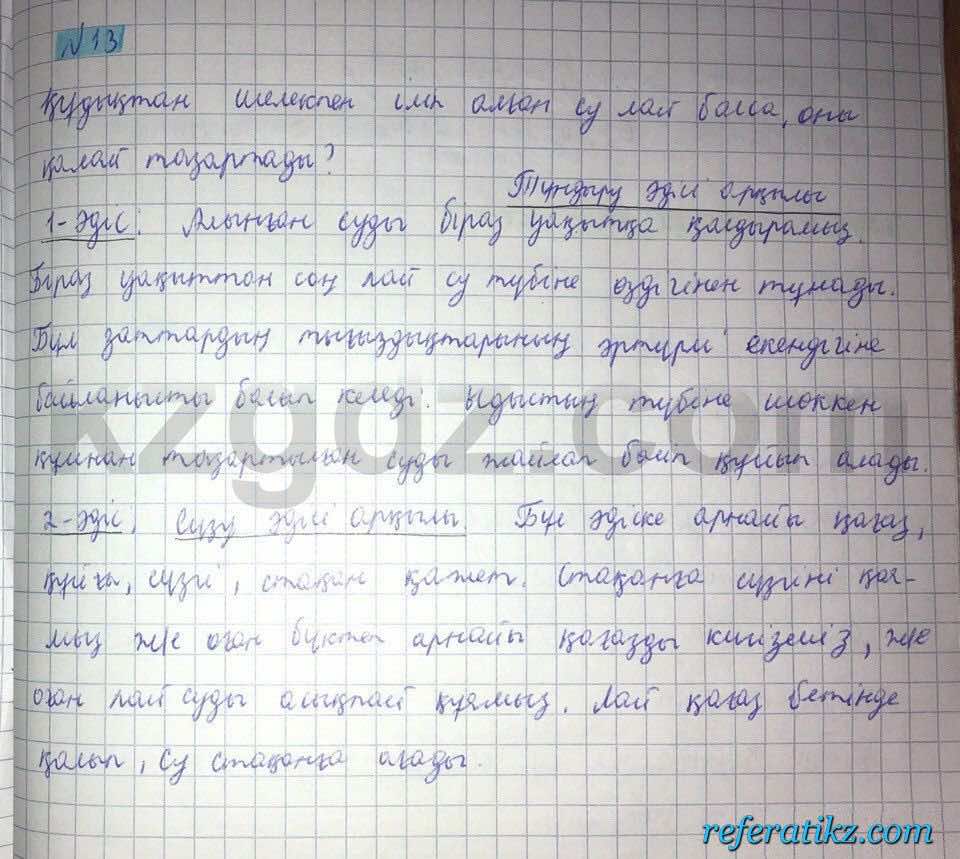 №13
Құдықтан шелекпен іліп алған су лай болса, оны
қалай тазартады?
Тұндыру әдісі арқылы
1-әдіс: Алынған суды біраз уақытқа қалдырамыз.
Біраз уақыттан соң лай су түбіне өздігінен тұнады.
Бұл заттардың тығыздықтарының әртүрлі екендігіне
байланысты болып келеді. Ыдыстың түбіне шөккен
құмнан тазартылған суды жайлап бөліп құйып алады.
2-әдіс: Сүзу әдісі арқылы. Бұл әдіске арнайы қағаз,
құйғы, сүзгі, стақан қажет. Стақанға сүзгіні қоя-
мыз ж/е оған бүктеп арнайы қағазды кигіземіз, ж/е
оған лай суды асықпай құямыз. Лай қағаз бетінде
қалып, су стақанға ағады.
kzgdz.com
referatikz.com